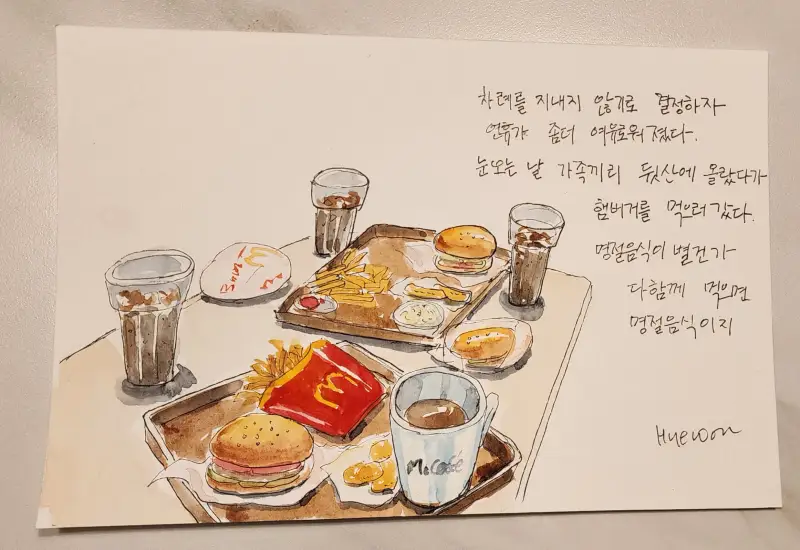 차례를 지내지 않기로 결정하자
연휴가 좀더 여유로워졌다.
눈오는 날 가족끼리 뒷산에 올랐다가
햄버거를 먹으러 갔다.
명절음식이 별건가
다함께 먹으면
명절음식이지
Huewon
McCafé